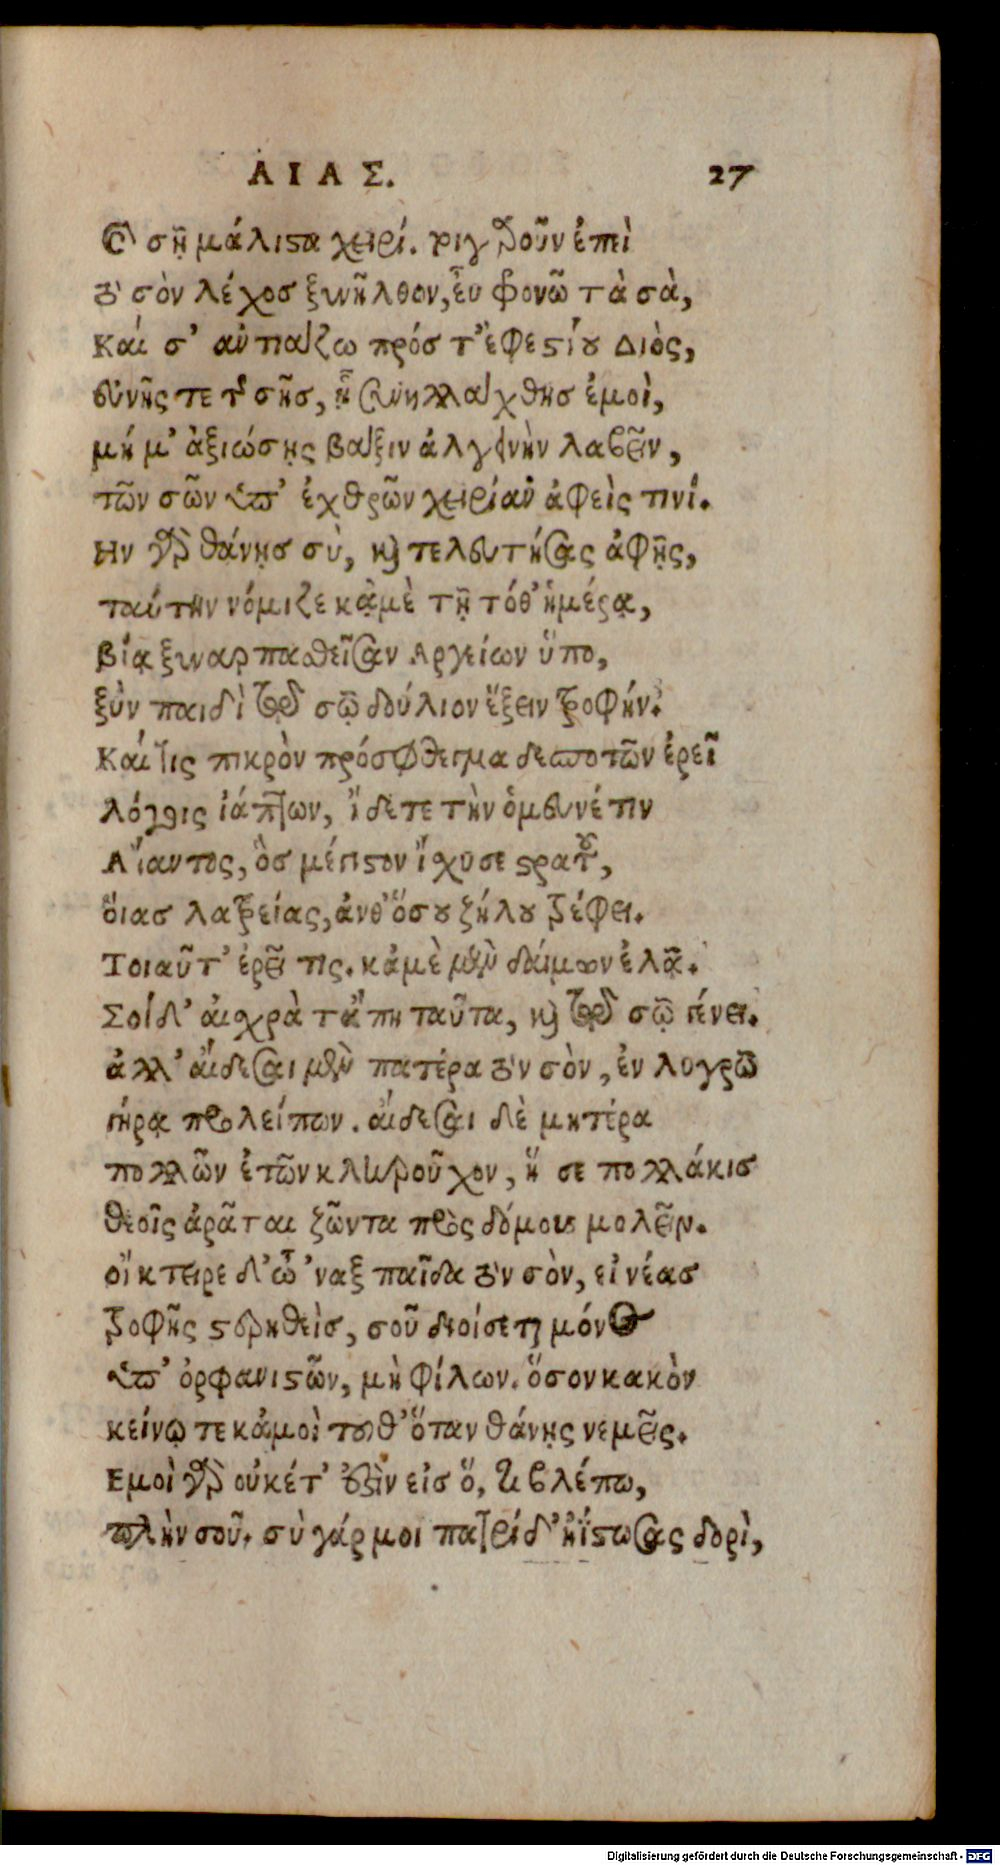 ΑΙΑΣ. 27
καὶ σῇ μάλιστα χειρί. τοιγαροῦν ἐπεὶ
τὸ σὸν λέχος ξυνῆλθον, εὖ φρονῶ τὰ σὰ,
Καί σ' ἀντιάζω πρός τ' ἐφεστίου Διὸς,
εὐνῆς τε τῆς σῆς, ᾗ συνηλλάχθης ἐμοὶ,
μή μ' ἀξιώσῃς βάξιν ἀλγεινὴν λαβεῖν,
τῶν σῶν ὑπ' ἐχθρῶν χειρίαν ἀφεὶς τινί.
Ην γὰρ θάνῃς σὺ, καὶ τελευτήσας ἀφῇς,
ταύτην νόμιζε κᾀμὲ τῇ τόθ' ἡμέρᾳ,
βίᾳ ξυναρπασθεῖσαν Αργείων ὕπο,
ξὺν παιδὶ τῷ σῷ δούλιον ἕξειν τροφήν.
Καί τις πικρὸν πρόσφθεγμα δεσποτῶν ἐρεῖ
λόγοις ἰάπτων, ἴδετε τὴν ὁμευνέτιν
Αἴαντος, ὃς μέγιστον ἴχυσε στρατοῦ,
ὅιας λατρείας, ἀνθ' ὅσου ζήλου τρέφει.
Τοιαῦτ' ἐρεῖ τις. κἀμὲ μὲν δαίμων ἐλᾷ.
Σοὶ δ' αἰσχρὰ τἄπη ταῦτα, καὶ τῷ σῷ γένει.
ἀλλ' αἴδεσαι μὲν πατέρα τὸν σὸν, ἐν λυγρῷ
γήρᾳ προλείπων. αἴδεσαι δὲ μητέρα
πολλῶν ἐτῶν κληροῦχον, ἥ σε πολλάκις
θεοῖς ἀρᾶται ζῶντα πρὸς δόμους μολεῖν.
οἴκτειρε δ' ὦ 'ναξ παῖδα τὸν σὸν, εἰ νέας
τροφῆς στερηθεὶς, σοῦ διοίσεται μόνος
ὑπ' ὀρφανιστῶν, μὴ φίλων. ὅσον κακὸν
κείνῳ τε κἀμοὶ τοῦθ' ὅταν θάνῃς νεμεῖς.
Εμοὶ γὰρ οὐκέτ' ἐστὶν εἰς ὅ, τι βλέπω,
πλὴν σοῦ. σὺ γάρ μοι πατρίδ' ᾔστωσας δορὶ,
Digitalisierung gefördert durch die Deutsche Forschungsgemeinschaft - DFG